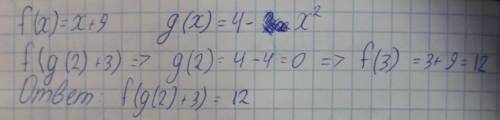 f(x)=x+9 g(x)=4-x²
f(g(2)+3) => g(2)=4-4=0 => f(3)=3+9=12
Ответ: f(g(2)+3)=12